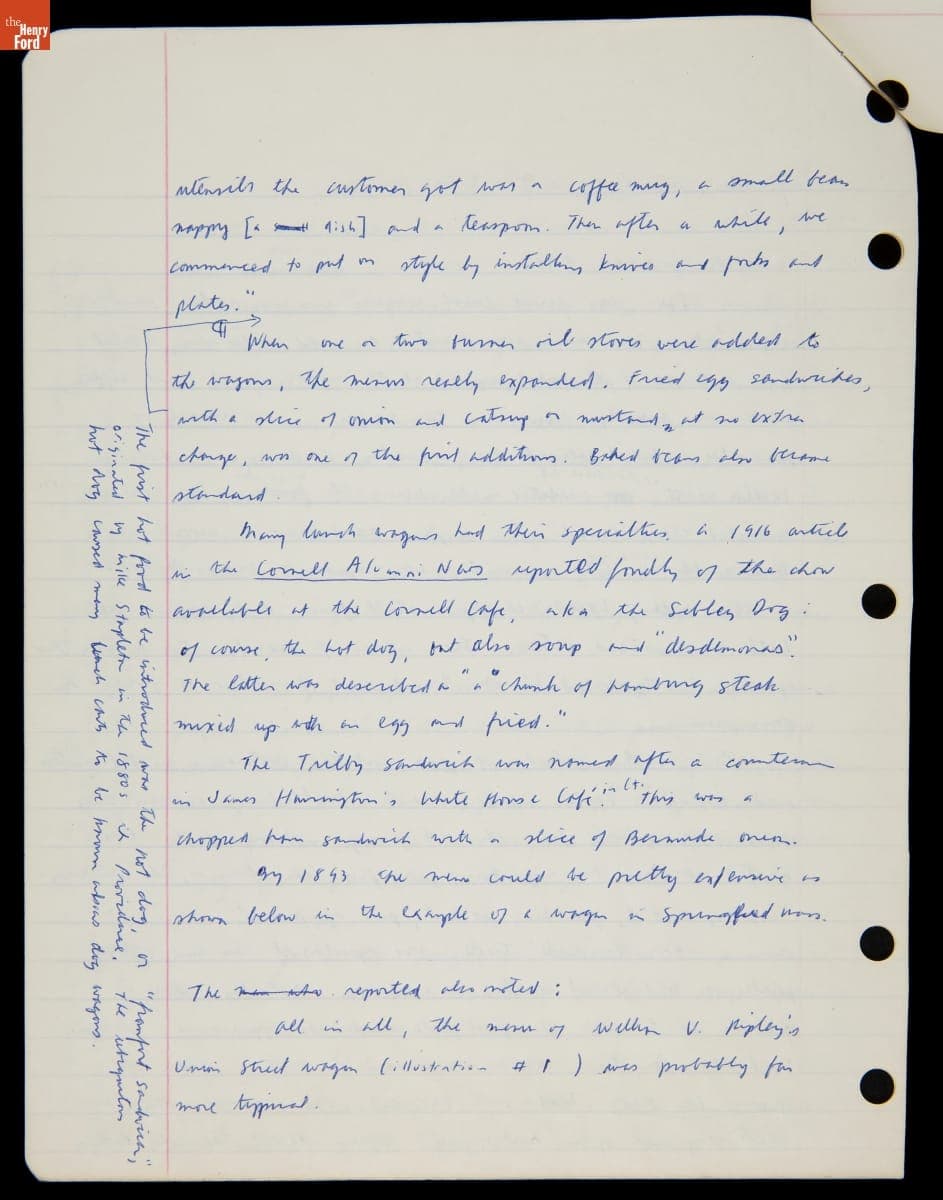 the
Henry
Ford
utensils the customer got was a coffee mug, a small bean
nappy [a small dish] and a teaspoon. Then after a while, we
commenced to put on style by installing knives and forks and
plates."
¶ When one or two burner oil stoves were added to
the wagons, the menus really expanded. Fried egg sandwiches,
with a slice of onion and catsup or mustard, at no extra
charge, was one of the first additions. Baked beans also became
standard.
Many lunch wagons had their specialties. A 1916 article
in the Cornell Alumni News reported fondly of the chow
available at the Cornell Cafe, aka the Sibley Dog:
of course, the hot dog, but also soup and "desdemonas".
The latter was described as "a "chunk of hamburg steak
mixed up with an egg and fried."
The Trilby sandwich was named after a counterman
in James Harrington's White House Café. in Ct. This was a
chopped ham sandwich with a slice of Bermuda onion.
By 1893 the menu could be pretty expensive as
shown below in the example of a wagon in Springfield Mass.
The man who reported also noted:
All in all, the menu of V. Ripley's
Union Street wagon (illustration # 1 ) was probably far
more typical.
The first hot food to be introduced was the hot dog, or "frankfort sandwich,"
originated by Mike Stapleton in the 1880s in Providence. The ubiquitous
hot dog caused many lunch carts to be known as dog wagons.